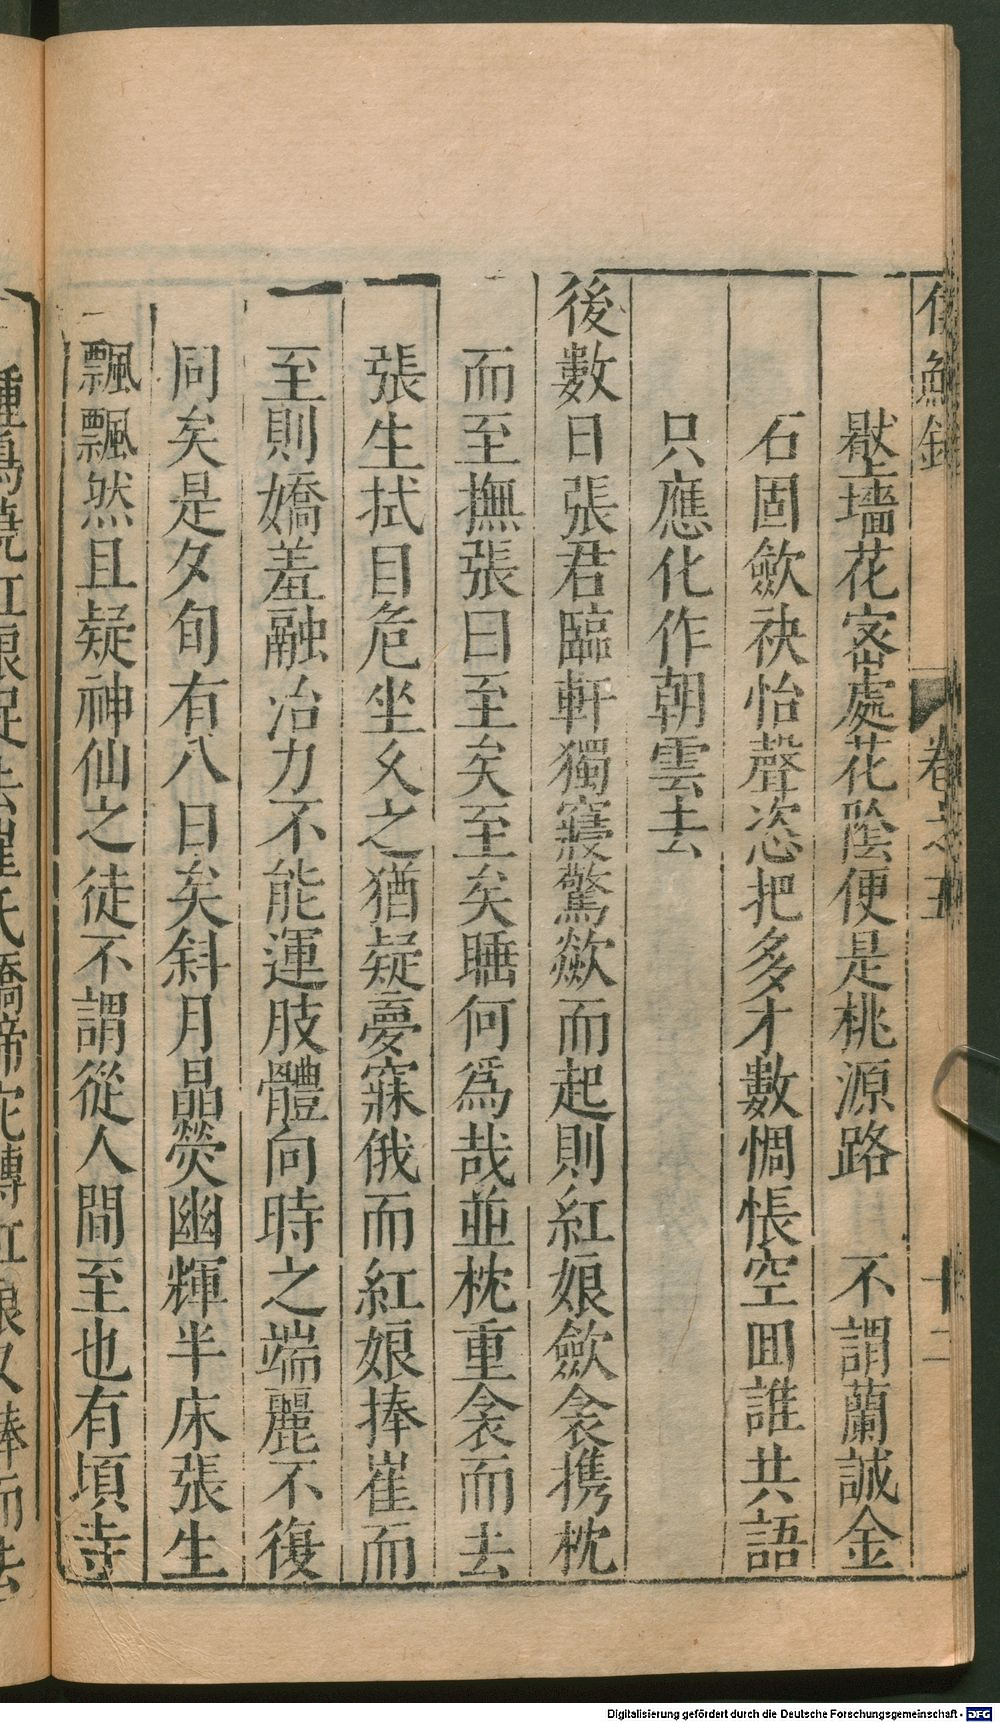 侯鯖錄 卷之五 十二
墻花宻處花陰便是桃源路 不謂蘭誠金
石固歛袂怡聲恣把多才數惆悵空囬誰共語
只應化作朝雲去
後數日張君臨軒獨寢驚欻而起則紅娘歛衾携枕
而至撫張曰至矣至矣睡何爲哉並枕重衾而去
張生拭目危坐久之猶疑夢寐俄而紅娘捧崔而
至則嬌羞融冶力不能運肢體向時之端麗不復
同矣是夕旬有八日矣斜月晶熒幽輝半床張生
飄飄然且疑神仙之徒不謂從人間至也有頃寺
鍾鳴曉紅娘促去崔氏嬌啼宛轉紅娘又捧而去
Digitalisierung gefördert durch die Deutsche Forschungsgemeinschaft - DFG